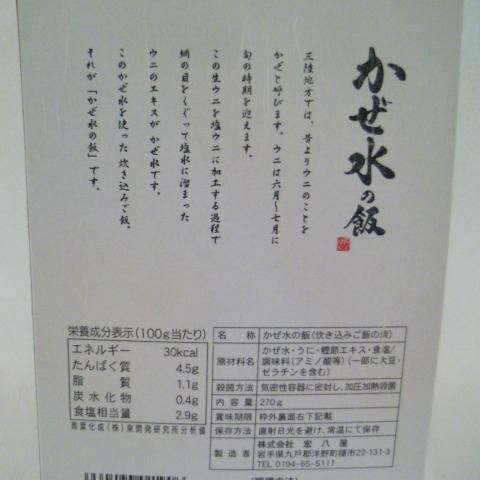 かぜ水の飯
三陸地方では、昔よりウニのことを
かぜと呼びます。ウニは六月〜七月に
旬の時期を迎えます。
この生ウニを塩ウニに加工する過程で
網の目をくぐって塩水に溜まった
ウニのエキスがかぜ水です。
このかぜ水を使った炊き込みご飯、
それが「かぜ水の飯」です。
栄養成分表示(100g当たり)
エネルギー 30kcal
たんぱく質 4.5g
脂質 1.1g
炭水化物 0.4g
食塩相当量 2.9g
青葉化成(株)泉開発研究所分析値
名称 かぜ水の飯(炊き込みご飯の素)
原材料名 かぜ水・うに・鰹節エキス・食塩/
調味料(アミノ酸等)(一部に大豆・
ゼラチンを含む)
殺菌方法 気密性容器に密封し、加圧加熱殺菌
内容量 270g
賞味期限 枠外裏面右下記載
保存方法 直射日光を避け、常温にて保存
製造者 株式会社 宏八屋
岩手県九戸郡洋野町種市22-131-3
TEL 0194-65-5111